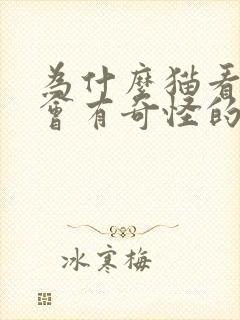 為什麼猫看
會有奇怪的
冰寒梅